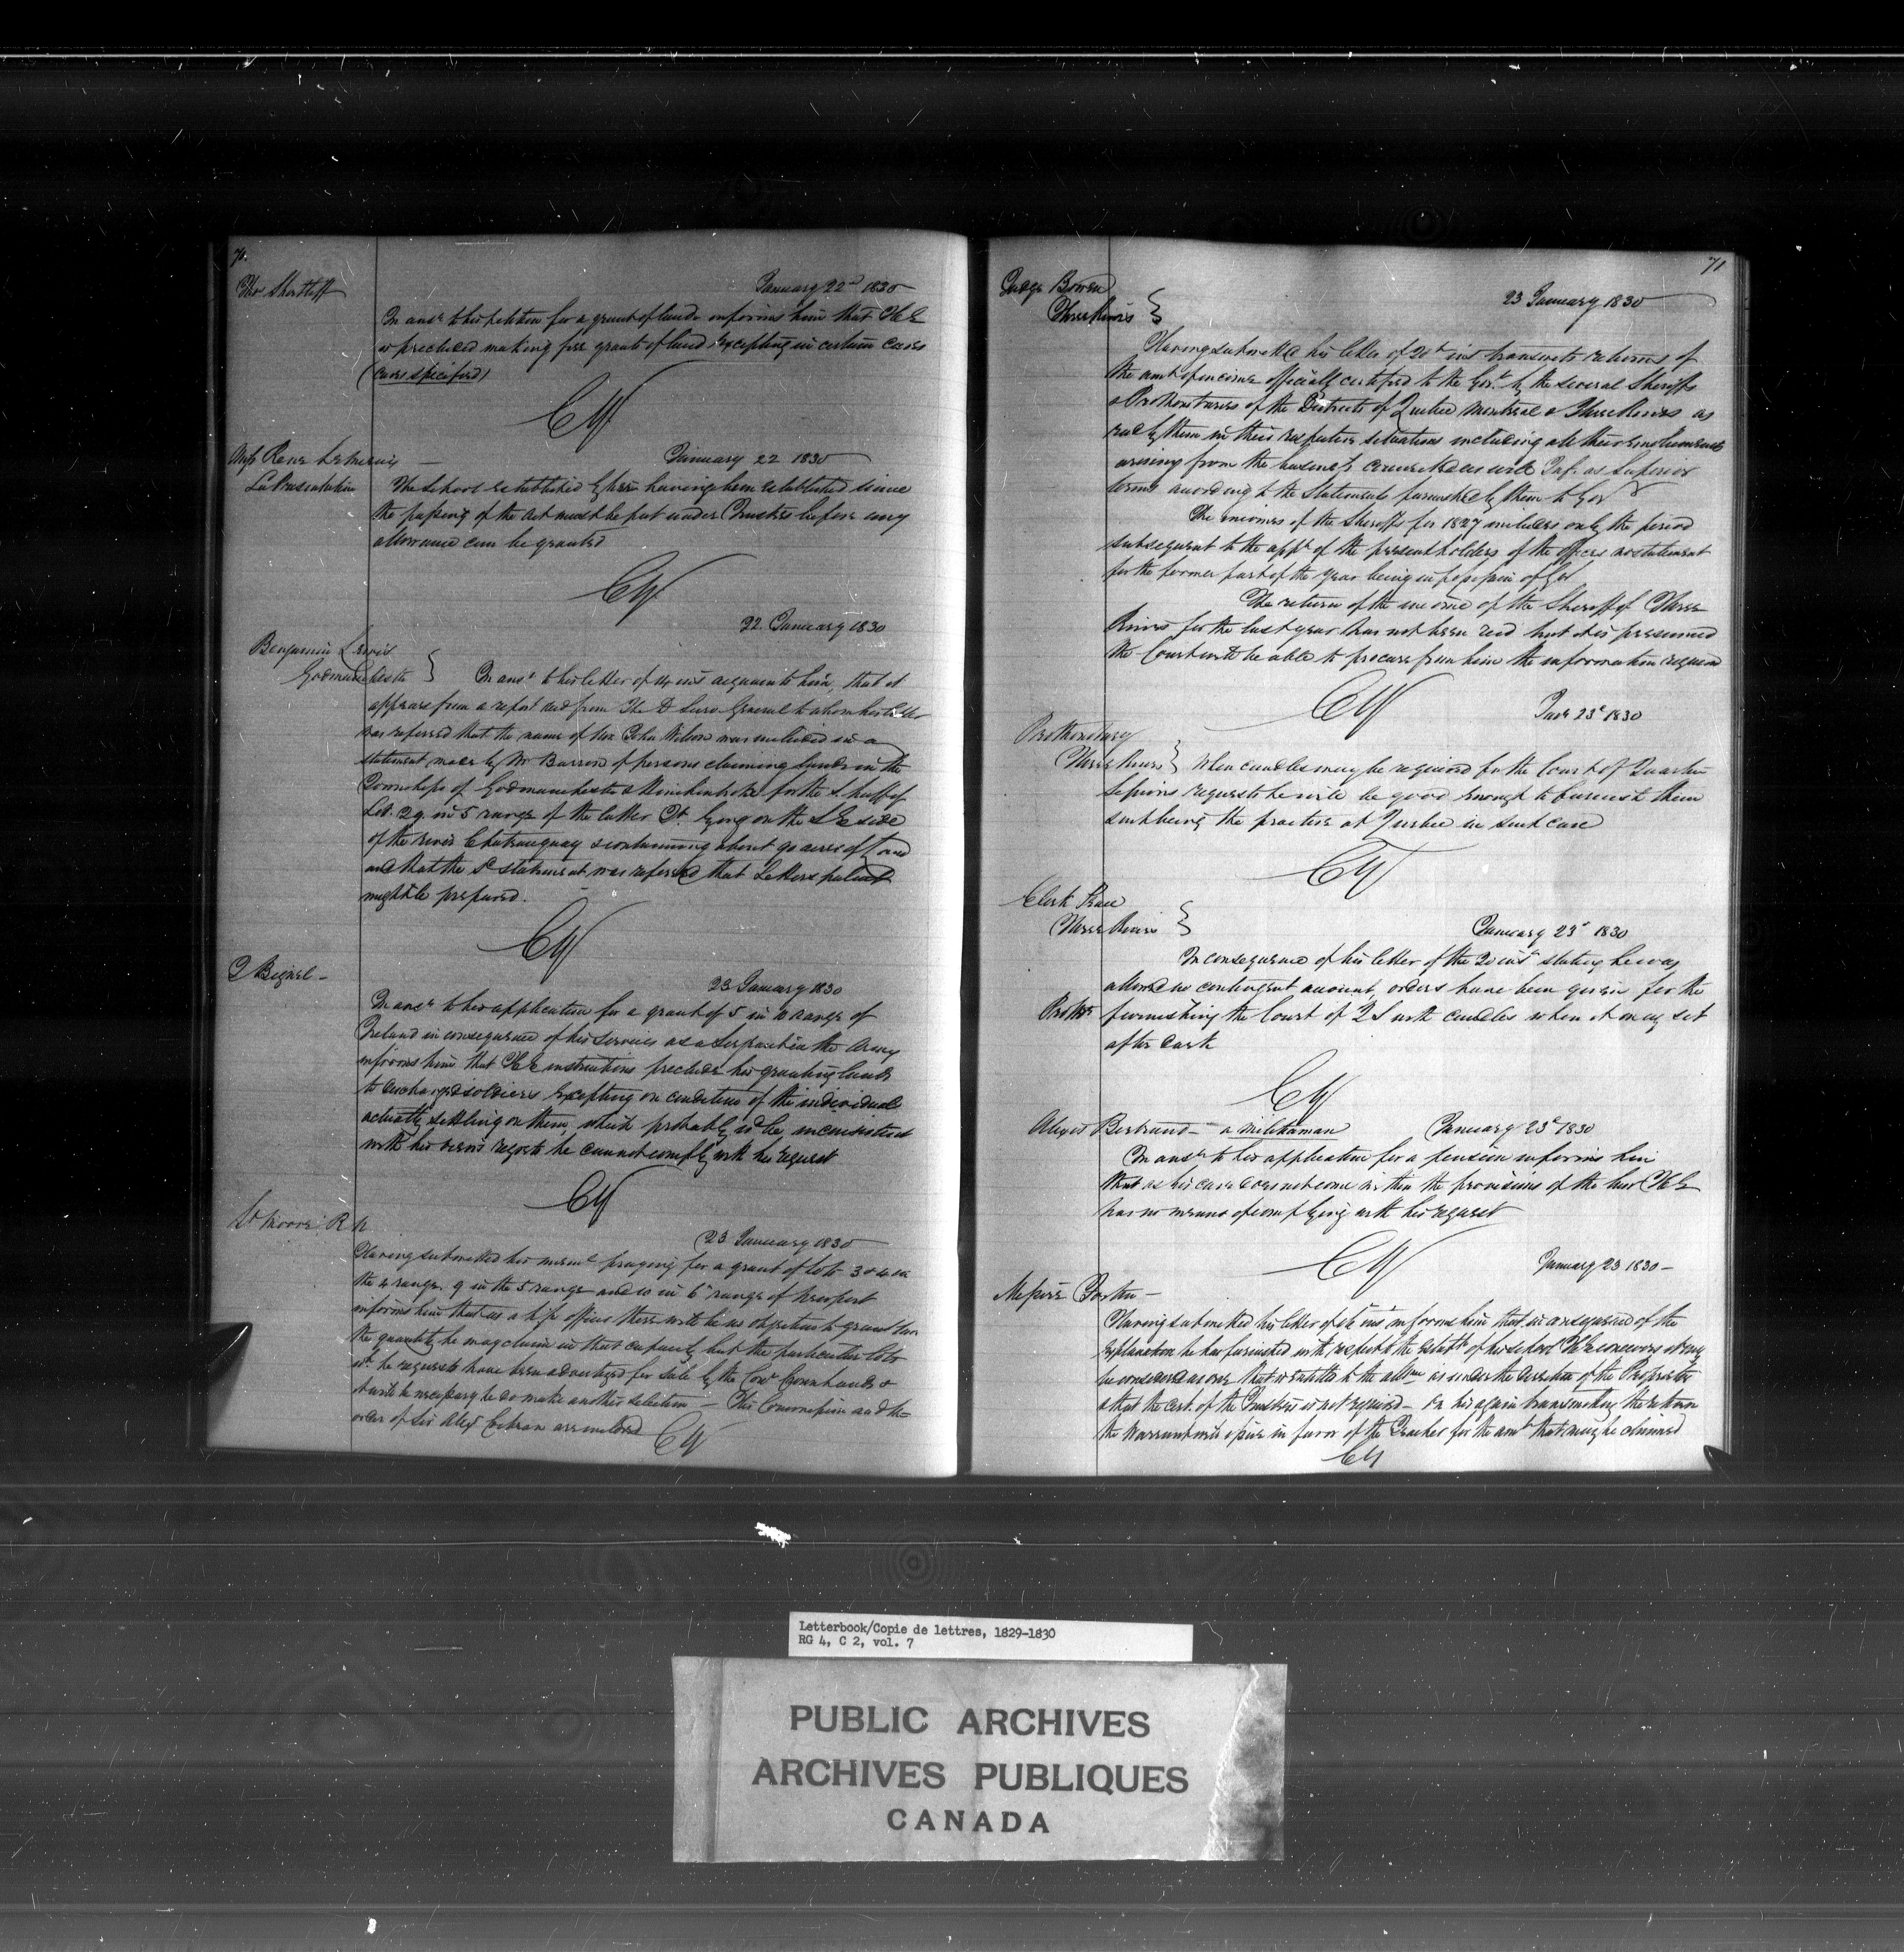 70.
Thos Shortleff
January 22d 1830
In ansr to his petition for a grant of lands informs him that H E
is precluded making free grants of land excepting in certain cases
(cases specified)
CY
Miss Rene
La Presentation
January 22 1830
The School established by her having been established since
the passing of the act must be put under Trustees before any
allowance can be granted
CY
22 January 1830
Benjamin Lewis
Godmanchester }
In ansr to his letter of 14 inst acquaints him, that it
appears from a report recd from The D Surv General to whom his letter
was referred that the name of John Wilson was included in a
statement made by Mr Barron of persons claiming lands in the
Townships of Godmanchester & Hinchinbrooke for the S. half of
Lot 29 in 5 range of the latter Tp lying on the S E side
of the river Chateauguay & containing about 90 acres of Land
and that the sd statement was referred that Letters patent
might be prepared.
CY
J Bignel -
23 January 1830
In ansr to his application for a grant of 5 in 10 range of
Ireland in consequence of his services as a Serjeant in the Army
informs him that H E instructions preclude his granting lands
to discharged soldiers excepting on condition of the individual
actually settling on them, which probably wd be inconsistent
with his views regrets he cannot comply with his request
CY
Lt Moore R N
23 January 1830
Having submitted his meml praying for a grant of lots 3 & 4 in
the 4 range 9 in the 5 range and 10 in 6th range of Newport
informs him that as a h/p officer there will be no objection to grant him
the quantity he may claim in that capacity but the particular lots
wh he requests have been advertized for sale by the Comr Crown Lands &
it will be necessary he do make another selection - His Commission and the
order of Sir Alexr Cochran are inclosed
CY
71
Judge Bowen
Three Rivers }
23 January 1830
Having submitted his letter of 20th inst transmits returns of
the amt of income officially certified to the Govt by the several Sheriffs
& Prothonotaries of the Districts of Quebec Montreal & Three Rivers as
recd by them in their respective situations including all their emoluments
arising from the business connected as well Inf. as Superior
terms according to the Statements furnished by them to Gov
The incomes of the Sheriffs for 1827 includes only the period
subsequent to the appt of the present holders of the offices no statement
for the former part of the year being in possession of Govt
The return of the income of the Sheriff of Three
Rivers for the last year has not been recd but it is presumed
the Court will be able to procure from him the information required
CY
Jany 23d 1830
Prothonotary
Three Rivers }
When candles may be required for the Court of Quarter
Sessions requests he will be good enough to furnish them
such being the practice at Quebec in such case
CY
Clerk Peace
Three Rivers }
January 23d 1830
In consequence of his letter of the 20 inst stating he was
allowed no contingent account, orders have been given for the
Prothy furnishing the Court of Q S with candles when it may sit
after dark
CY
Alexis Bertrand - a militiaman
January 23d 1830
In ansr to his application for a pension informs him
that as his case does not come within the provisions of the law H E
has no means of complying with his request
CY
January 23 1830 -
Messire Fortin -
Having submitted his letter of inst informs him that in consequence of the
explanation he has furnished with respect to the Establt of his school H E conceives it may
be considered as one that is entitled to the allce as under the direction of the Proprietor
& that the cert. of the Trustees is not required - On his again transmitting the return
the Warrant will issue in favor of the Teacher for the amt that may be claimed
CY
Letterbook/Copie de lettres, 1829-1830
RG 4, C 2, vol. 7
PUBLIC ARCHIVES
ARCHIVES PUBLIQUES
CANADA